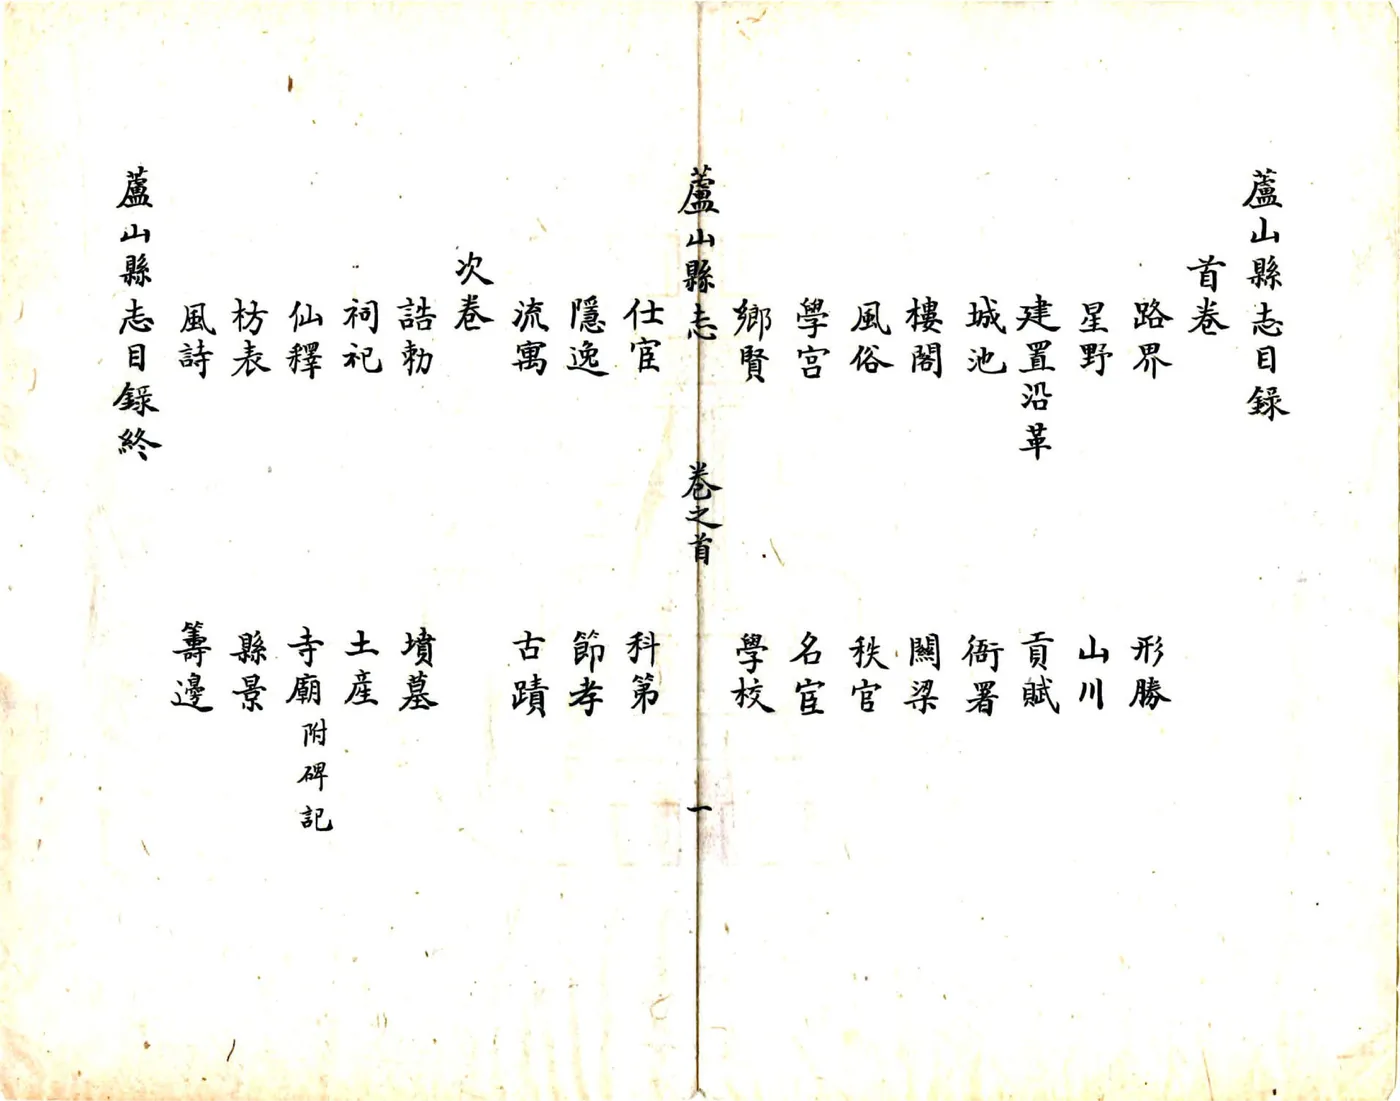 蘆山縣志目錄
首卷
路界 形勝
星野 山川
建置沿革 貢賦
城池 衙署
樓閣 關梁
風俗 秩官
學宮 名宦
鄉賢 學校
蘆山縣志 卷之首 一
仕宦 科第
隱逸 節孝
流寓 古蹟
次卷
誥勅 墳墓
祠祀 土產
仙釋 寺廟附碑記
枋表 縣景
風詩 籌邊
蘆山縣志目錄終